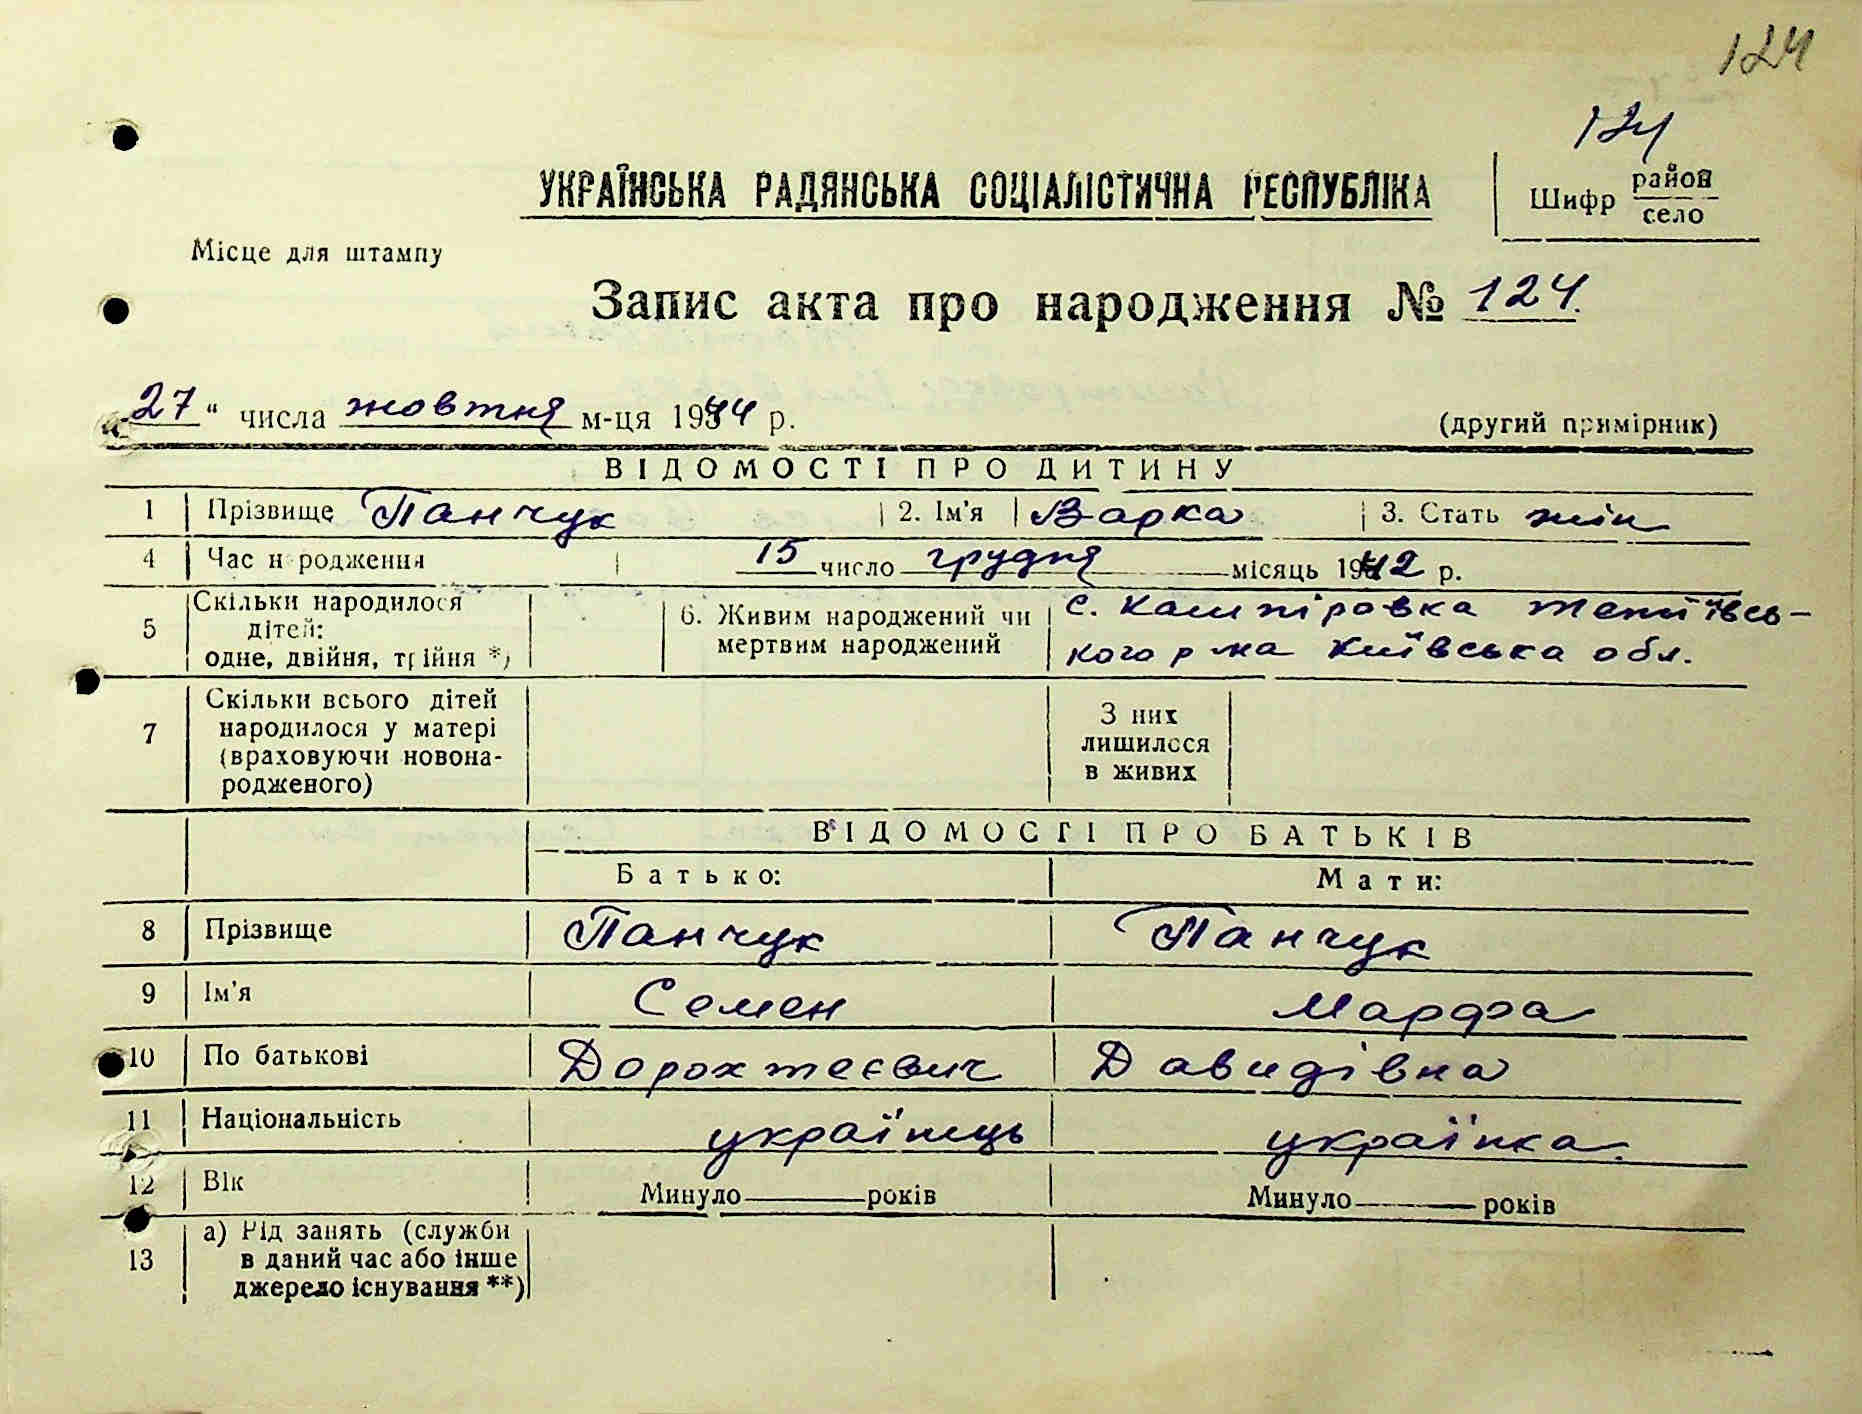 124
124
УКРАЇНСЬКА РАДЯНСЬКА СОЦІАЛІСТИЧНА РЕСПУБЛІКА
Шифр район
село
Місце для штампу
Запис акта про народження № 124.
„27“ числа жовтня м-ця 1944 р.
(другий примірник)
ВІДОМОСТІ ПРО ДИТИНУ
1 Прізвище Панчук 2. Ім'я Варка 3. Стать жін
4 Час народження 15 число грудня місяць 1942 р.
5 Скільки народилося дітей: одне, двійня, трійня *)
6. Живим народжений чи мертвим народжений
с. Кашпіровка тетіївсь-
кого р-на Київська обл.
7 Скільки всього дітей народилося у матері (враховуючи новона-родженого)
З них лишилося в живих
ВІДОМОСТІ ПРО БАТЬКІВ
Батько: Мати:
8 Прізвище Панчук Панчук
9 Ім'я Семен Марфа
10 По батькові Дорохтеєвич Давидівна
11 Національність українець українка.
12 Вік Минуло років Минуло років
13 а) Рід занять (служби в даний час або інше джерело існування **)